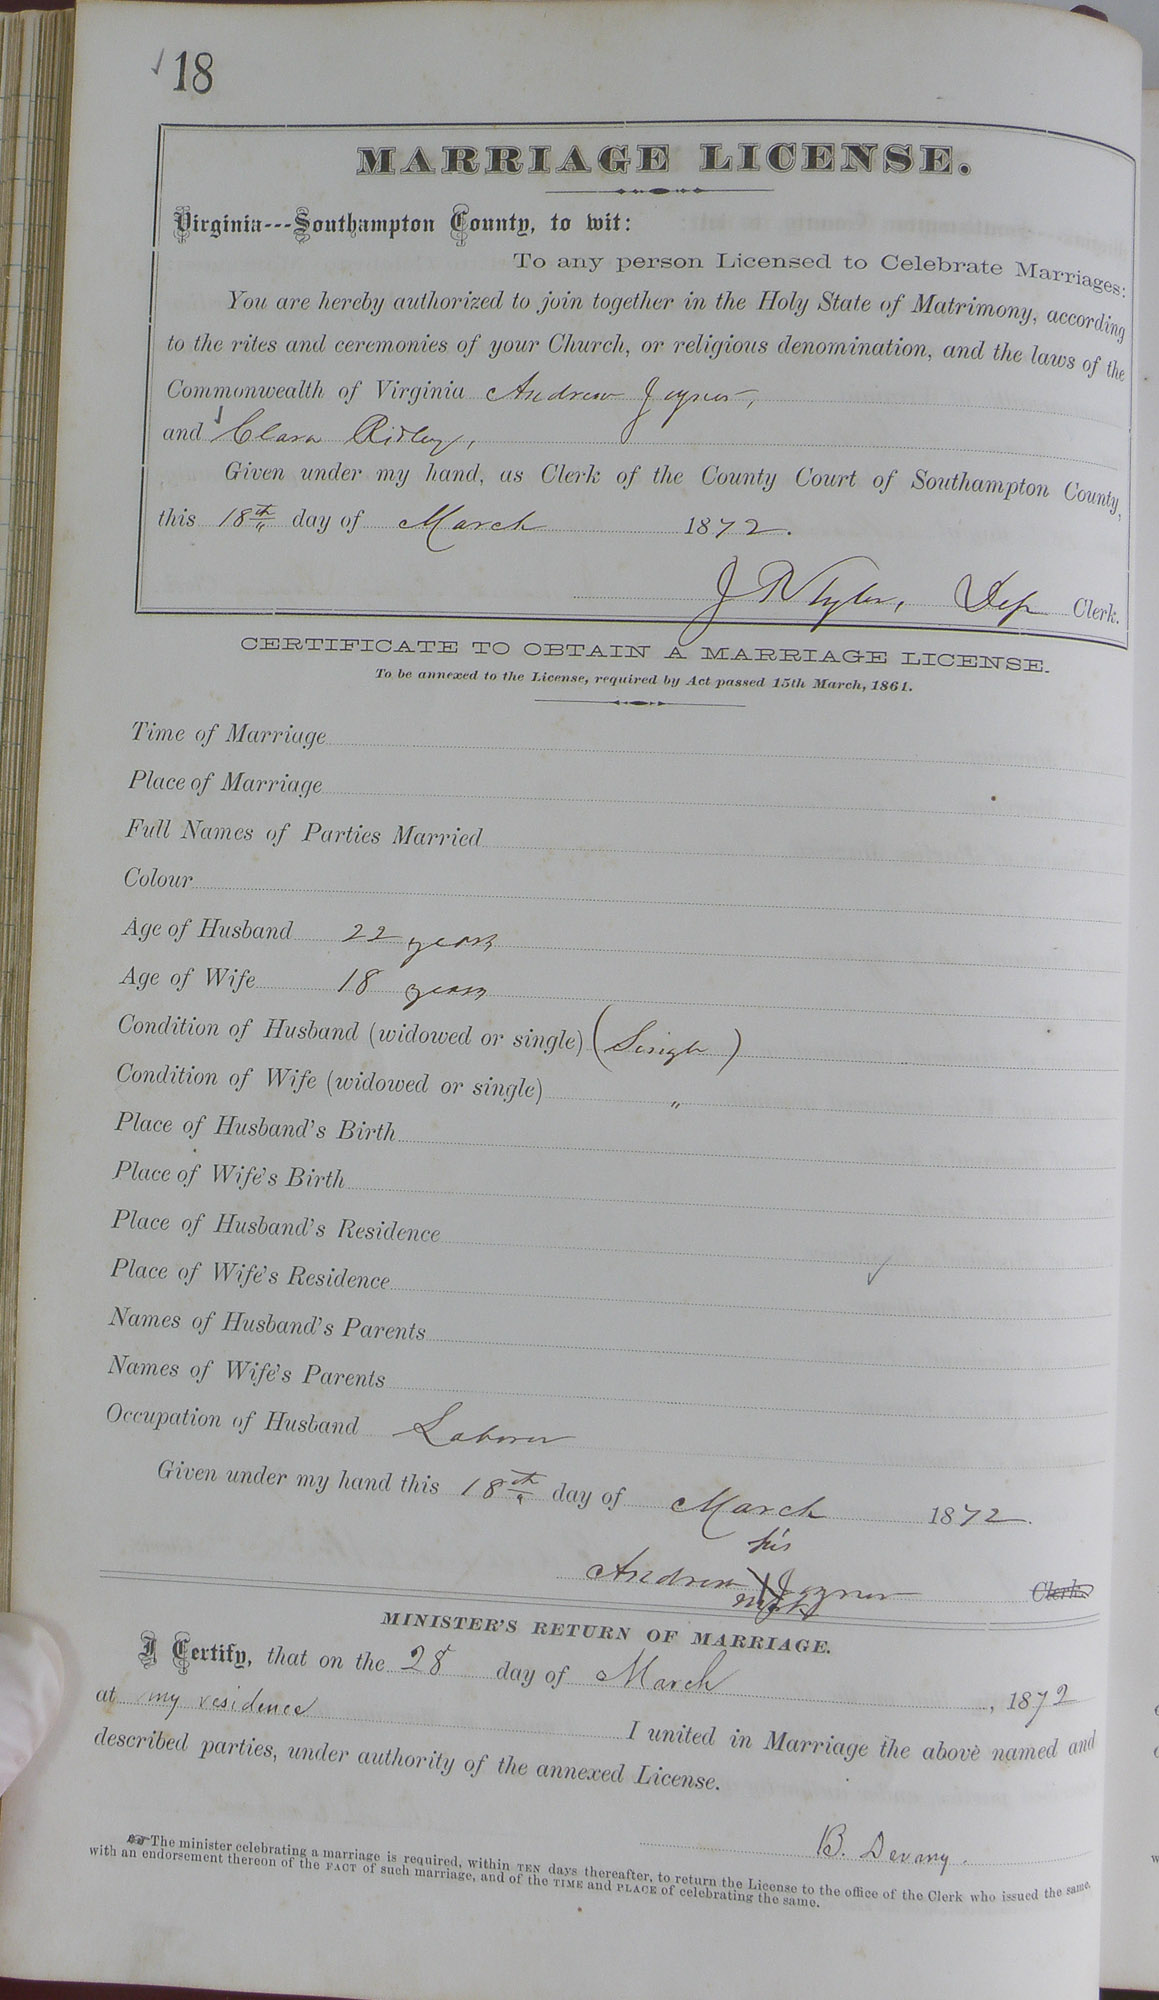 18
MARRIAGE LICENSE.
Virginia---Southampton County, to wit:
To any person Licensed to Celebrate Marriages:
You are hereby authorized to join together in the Holy State of Matrimony, according
to the rites and ceremonies of your Church, or religious denomination, and the laws of the
Commonwealth of Virginia Andrew Joyner,
and Clara Ridley,
Given under my hand, as Clerk of the County Court of Southampton County,
this 18th day of March 1872.
Dep Clerk.
CERTIFICATE TO OBTAIN A MARRIAGE LICENSE.
To be annexed to the License, required by Act passed 15th March, 1861.
Time of Marriage
Place of Marriage
Full Names of Parties Married
Colour
Age of Husband 22 years
Age of Wife 18 years
Condition of Husband (widowed or single) (Single)
Condition of Wife (widowed or single) "
Place of Husband's Birth
Place of Wife's Birth
Place of Husband's Residence
Place of Wife's Residence
Names of Husband's Parents
Names of Wife's Parents
Occupation of Husband Laborer
Given under my hand this 18th day of March 1872.
his
Andrew X Joyner Clerk.
mark
MINISTER'S RETURN OF MARRIAGE.
I Certify, that on the 28 day of March, 1872
at my residence I united in Marriage the above named and
described parties, under authority of the annexed License.
B. Devany.
The minister celebrating a marriage is required, within TEN days thereafter, to return the License to the office of the Clerk who issued the same,
with an endorsement thereon of the FACT of such marriage, and of the TIME and PLACE of celebrating the same.